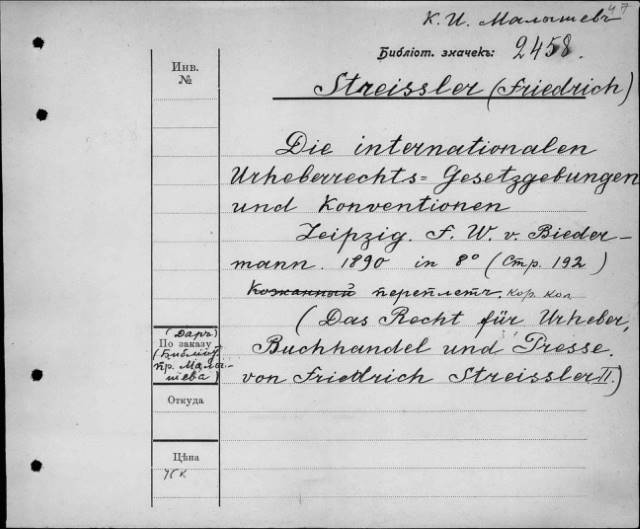 К. И. Малышевъ 47
Библіот. значекъ: 2458.
Инв.
№
Streissler (Friedrich)
Die internationalen
Urheberrechts= Gesetzgebungen
und Konventionen
Leipzig. F. W. v. Bieder-
mann. 1890 in 8° (Стр. 192)
Кожанный переплетъ. кор. кол
(Das Recht für Urheber,
Buchhandel und Presse.
von Friedrich Streissler II.)
(Даръ)
По заказу
(Библіот.
пр. Малы-
шева)
Откуда
Цѣна
75 к